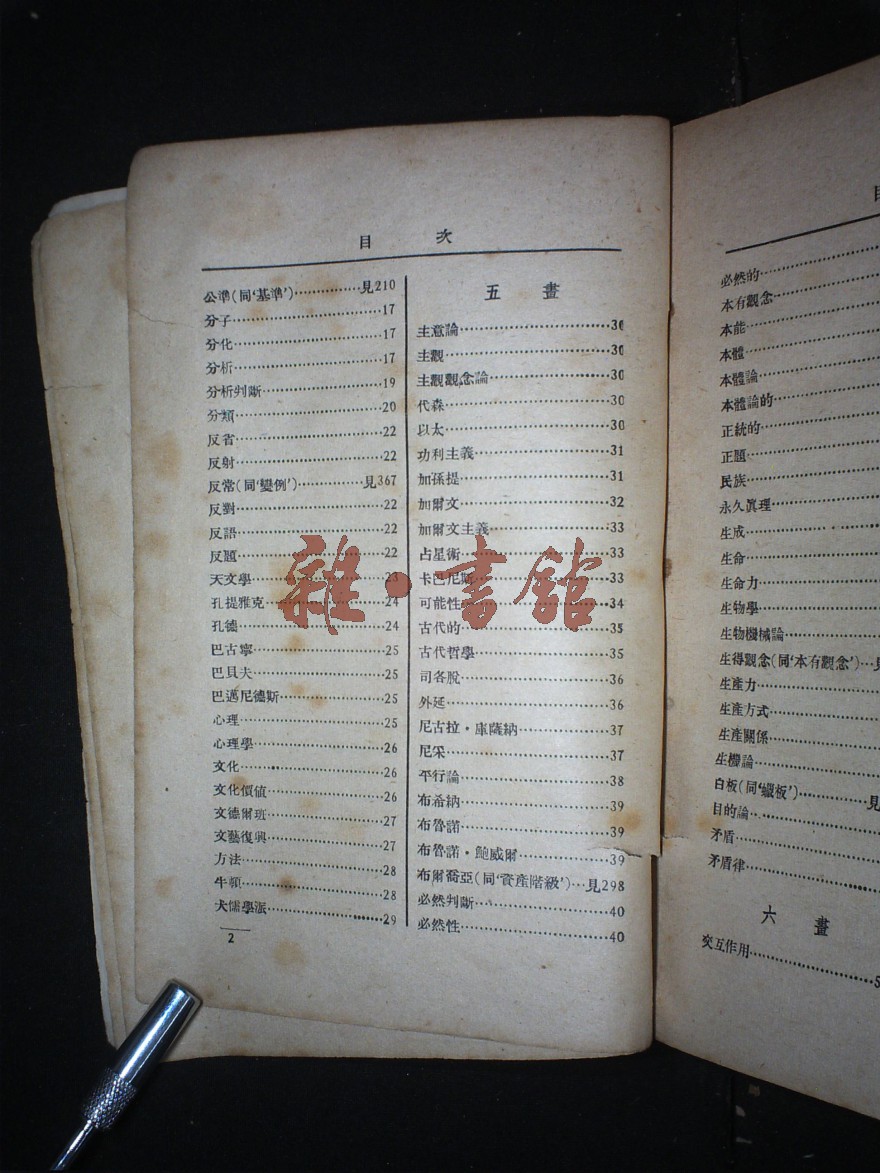 目 次
公準(同‘基準’)……………見210
分子……………17
分化……………17
分析……………17
分析判斷……………19
分類……………20
反省……………22
反射……………22
反常(同‘變例’)……………見367
反對……………22
反語……………22
反題……………22
天文學……………23
孔提雅克……………24
孔德……………24
巴古寧……………25
巴貝夫……………25
巴邁尼德斯……………25
心理……………25
心理學……………26
文化……………26
文化價值……………26
文德爾班……………27
文藝復興……………27
方法……………28
牛頓……………28
犬儒學派……………29
2
五 畫
主意論……………30
主觀……………30
主觀觀念論……………30
代森……………30
以太……………30
功利主義……………31
加孫提……………31
加爾文……………32
加爾文主義……………33
占星術……………33
卡巴尼斯……………33
可能性……………34
古代的……………35
古代哲學……………35
司各脫……………36
外延……………36
尼古拉·庫薩納……………37
尼采……………37
平行論……………38
布希納……………39
布魯諾……………39
布魯諾·鮑威爾……………39
布爾喬亞(同‘資產階級’)…見298
必然判斷……………40
必然性……………40
雜·書館
必然的……………
本有觀念……………
本能……………
本體……………
本體論……………
本體論的……………
正統的……………
正題……………
民族……………
永久眞理……………
生成……………
生命……………
生命力……………
生物學……………
生物機械論……………
生得觀念(同‘本有觀念’)…見
生產力……………
生產方式……………
生產關係……………
生機論……………
白板(同‘蠟板’)……………見
目的論……………
矛盾……………
矛盾律……………
六 畫
交互作用……………